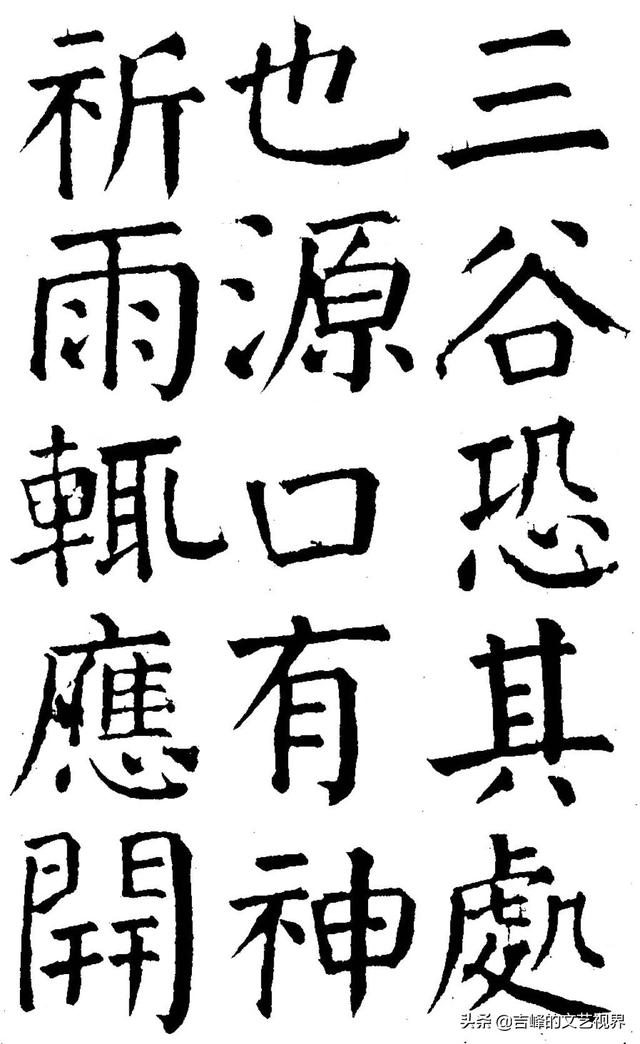 三谷恐其處
也源口有神
祈雨輒應開
头条 @吉峰的文艺视界